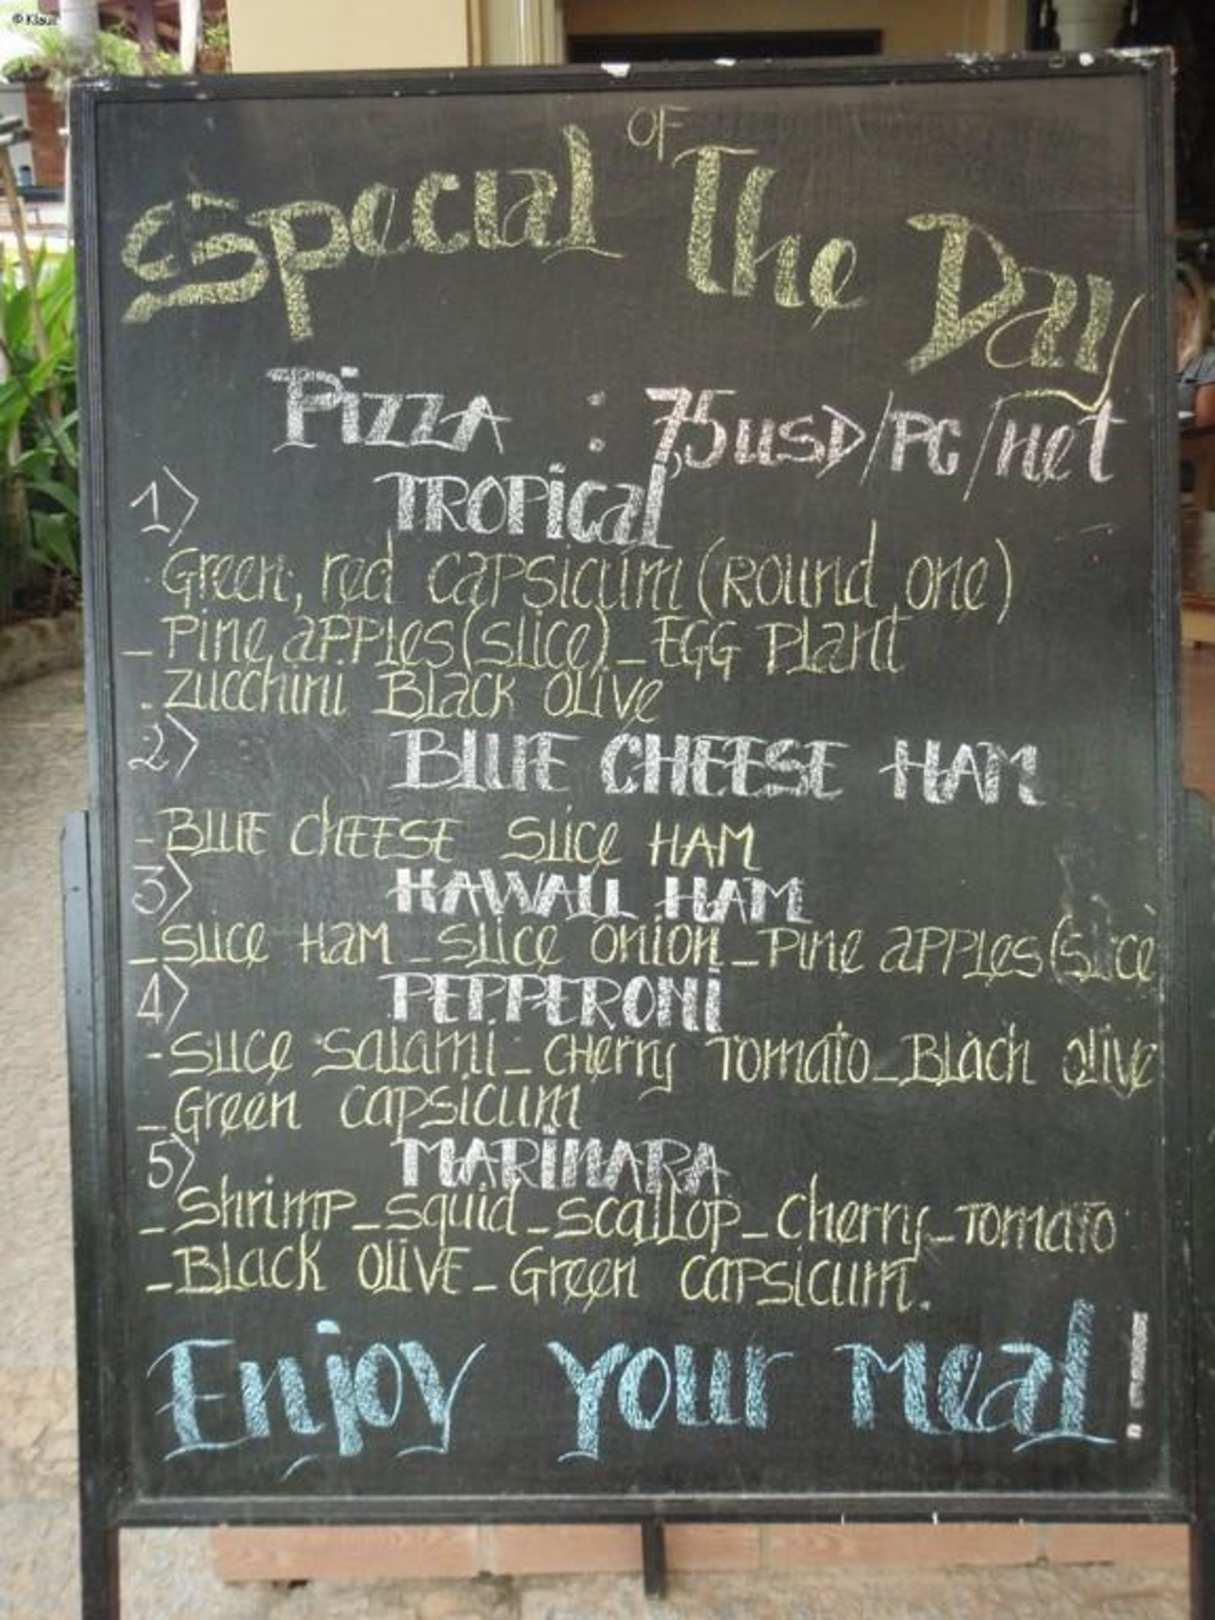 © Klaus
Special OF The Day
Pizza : 7,5 USD/PC/net
1) TROPical
Green, red capsicum (Round one)
- Pine apples (slice) - EGG Plant
- Zucchini Black olive
2) BLUE CHEESE HAM
- BLUE CHEESE Slice HAM
3) HAWAII HAM
- slice HaM - slice onion - Pine apples (slice
4) PEPPERONi
- slice salami - cherry Tomato - Black olive
- Green capsicum
5) MARiNARA
- Shrimp - squid - scallop - cherry - Tomato
- Black OLIVE - Green capsicum.
Enjoy your meal !